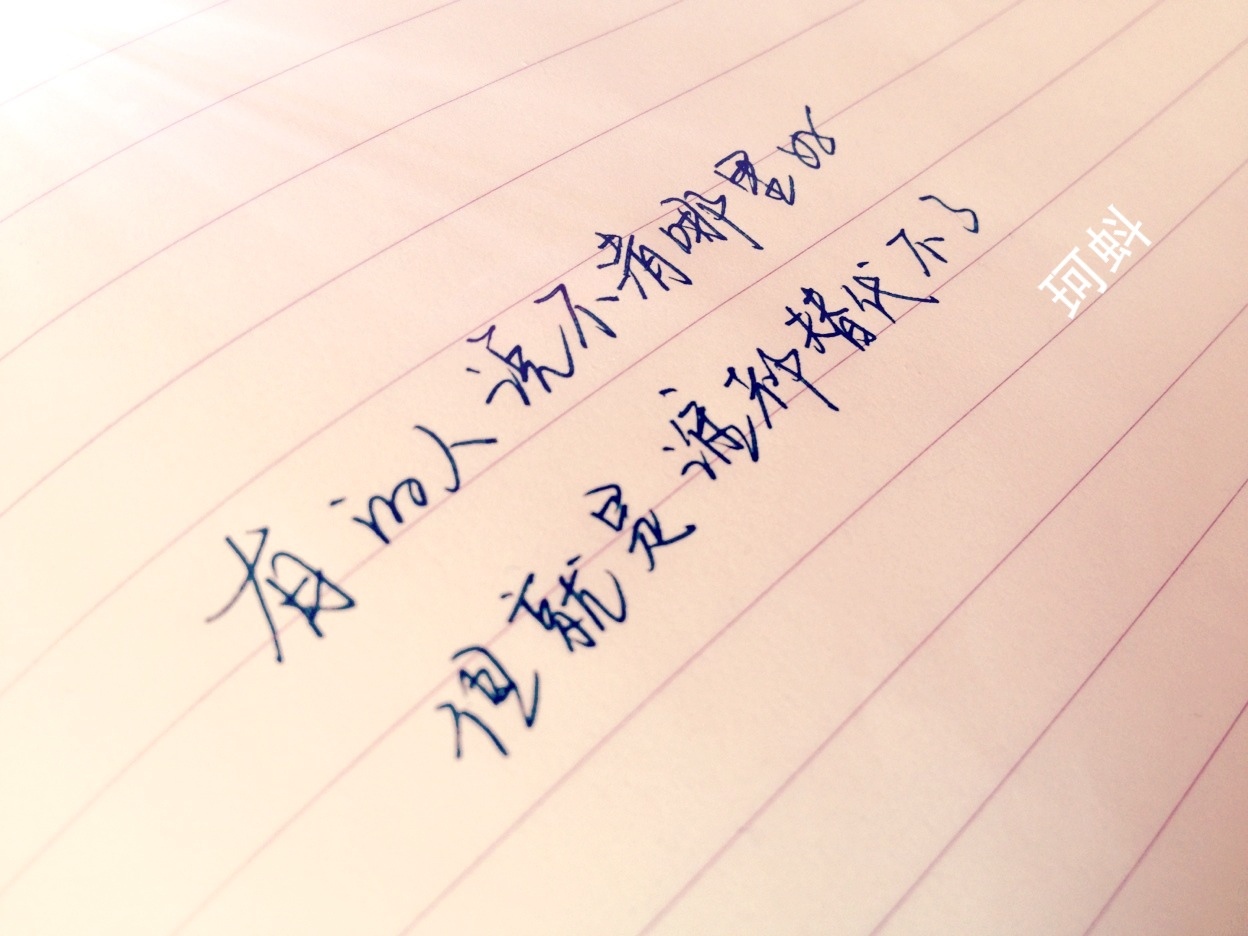 有的人说不清哪里好
但就是谁都替代不了
珂蚪